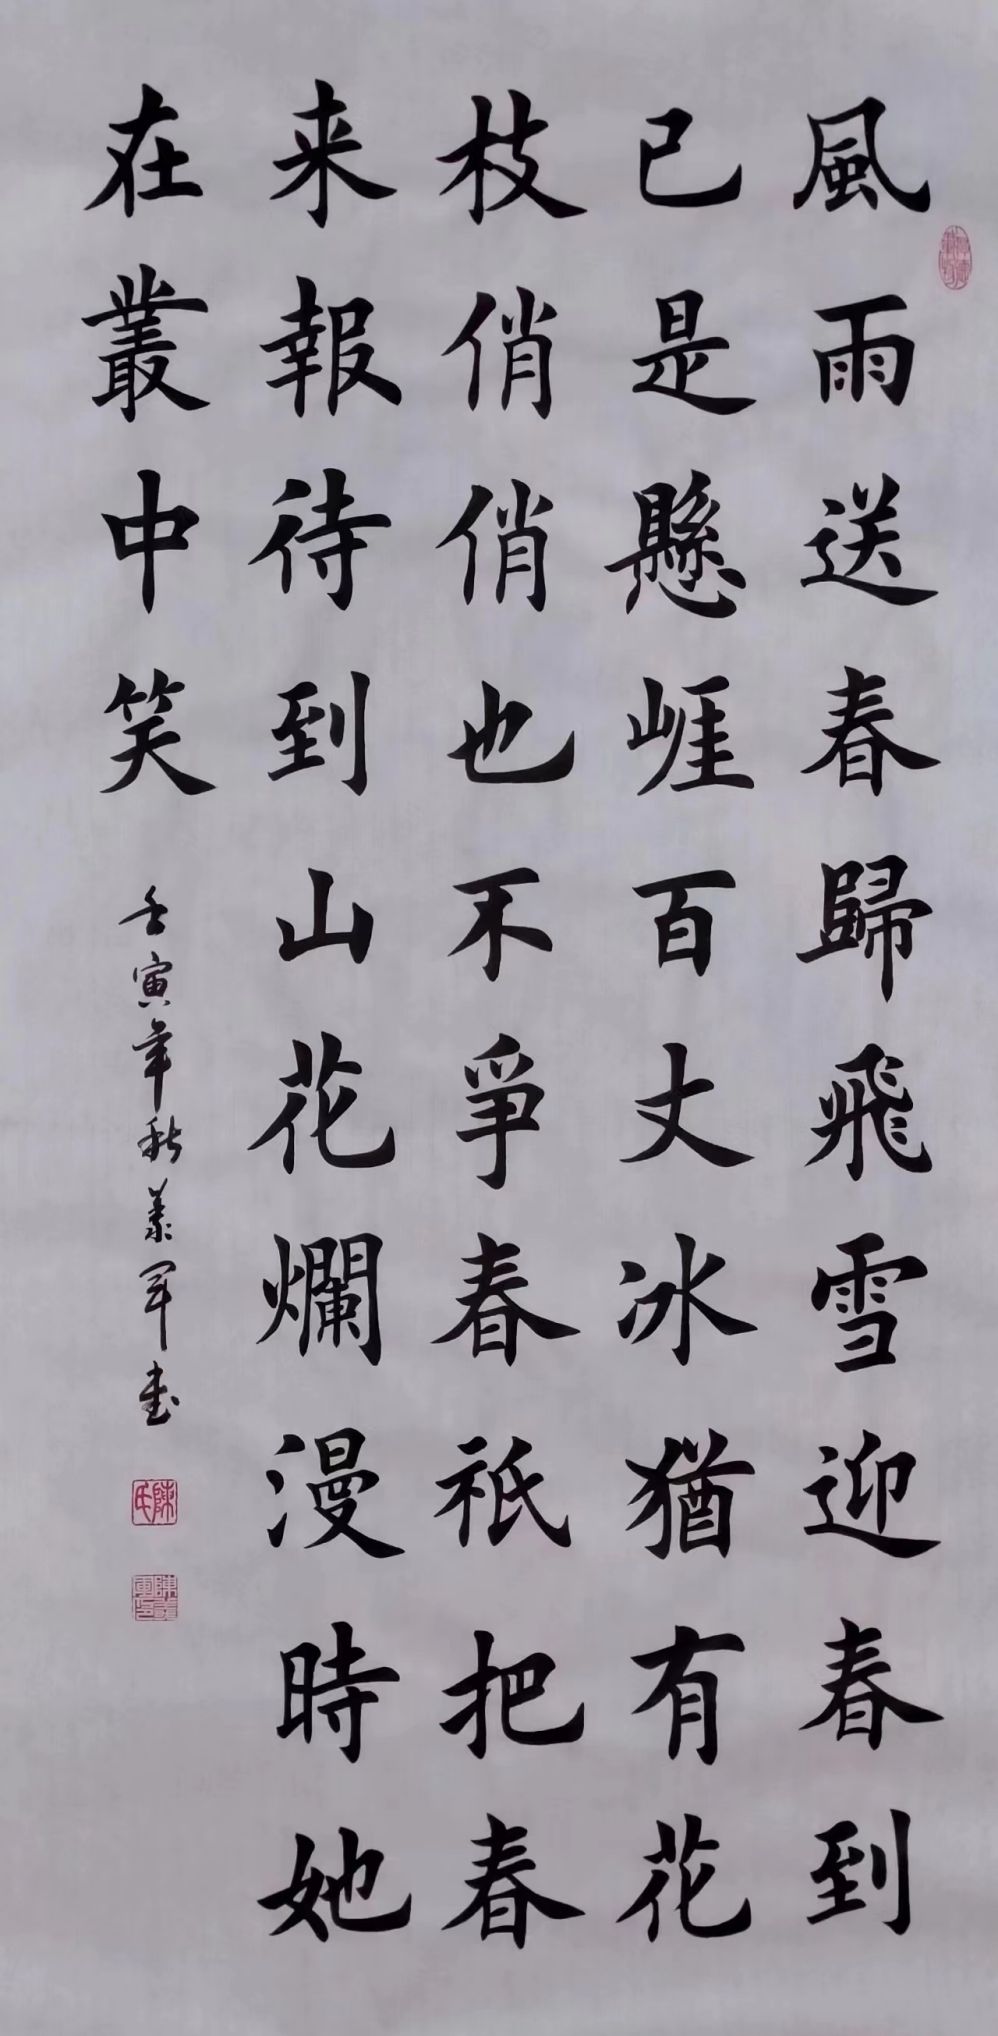 風雨送春歸飛雪迎春到
已是懸崖百丈冰猶有花
枝俏俏也不爭春衹把春
来報待到山花爛漫時她
在叢中笑
壬寅年秋義軍書
陳氏